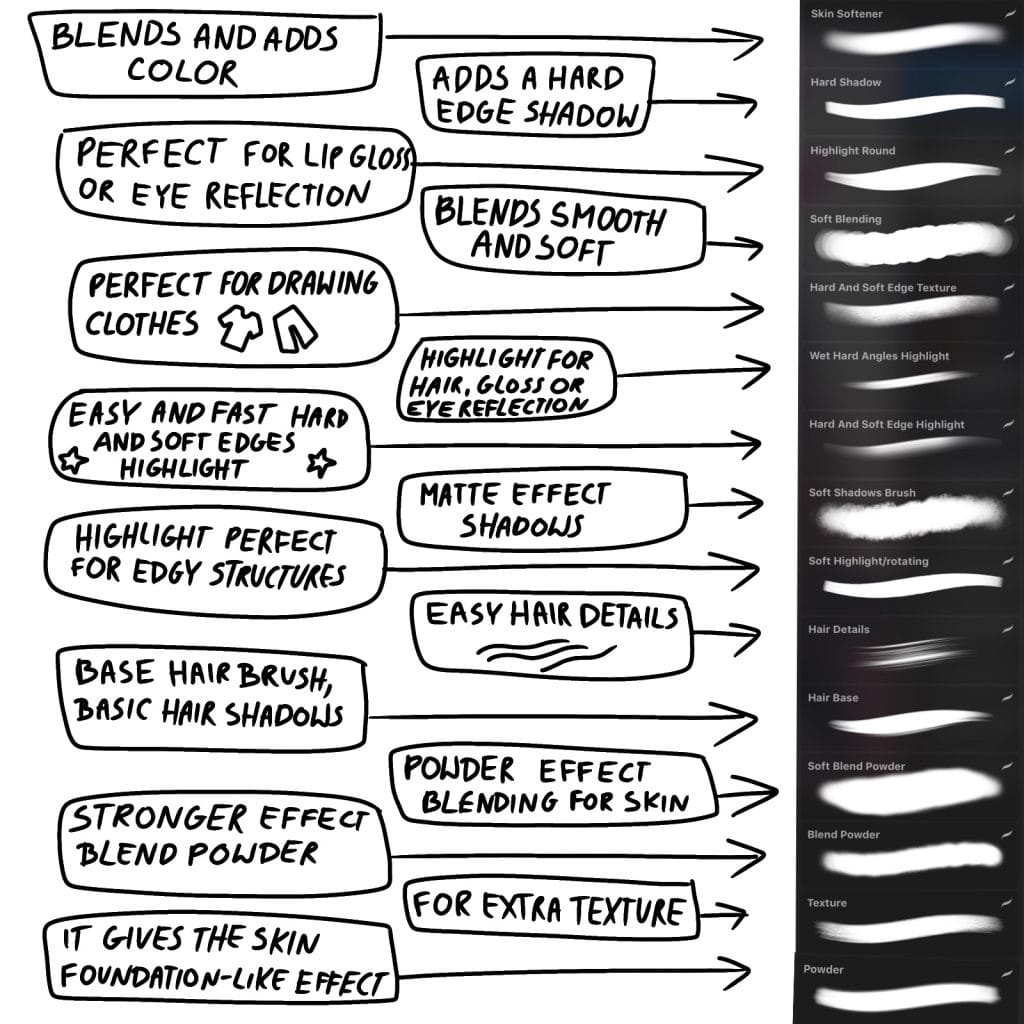 BLENDS AND ADDS
COLOR
Skin Softener
ADDS A HARD
EDGE SHADOW
Hard Shadow
PERFECT FOR LIP GLOSS
OR EYE REFLECTION
Highlight Round
BLENDS SMOOTH
AND SOFT
Soft Blending
PERFECT FOR DRAWING
CLOTHES
Hard And Soft Edge Texture
HIGHLIGHT FOR
HAIR, GLOSS OR
EYE REFLECTION
Wet Hard Angles Highlight
EASY AND FAST HARD
AND SOFT EDGES
HIGHLIGHT
Hard And Soft Edge Highlight
MATTE EFFECT
SHADOWS
Soft Shadows Brush
HIGHLIGHT PERFECT
FOR EDGY STRUCTURES
Soft Highlight/rotating
EASY HAIR DETAILS
Hair Details
BASE HAIR BRUSH,
BASIC HAIR SHADOWS
Hair Base
POWDER EFFECT
BLENDING FOR SKIN
Soft Blend Powder
STRONGER EFFECT
BLEND POWDER
Blend Powder
FOR EXTRA TEXTURE
Texture
IT GIVES THE SKIN
FOUNDATION-LIKE EFFECT
Powder